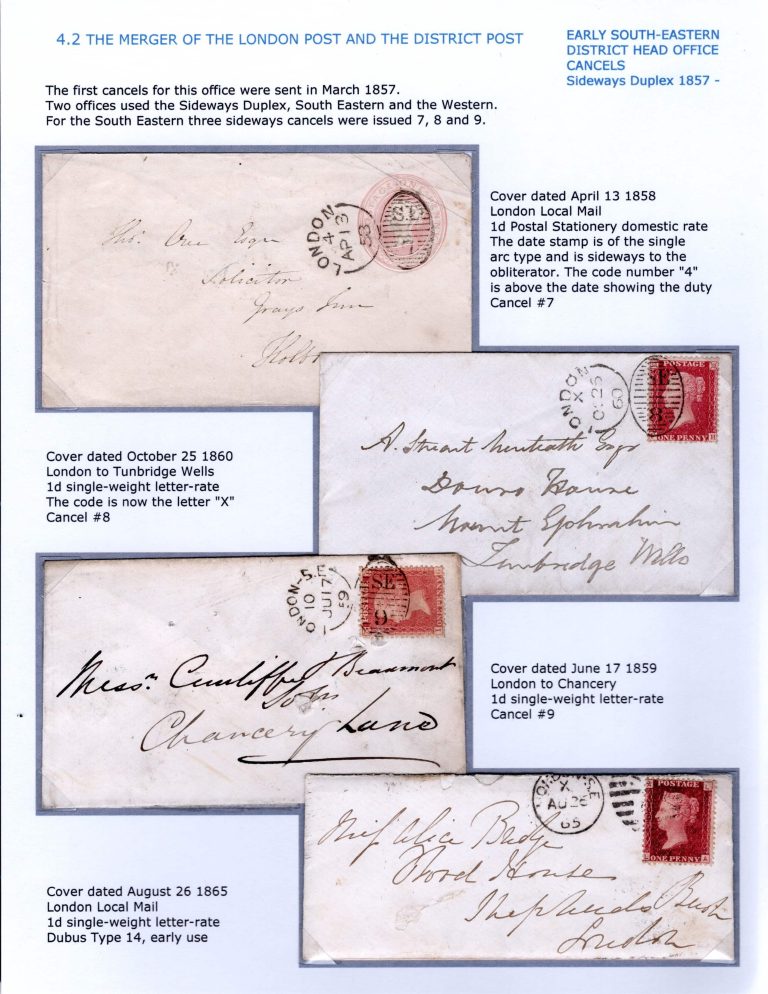 4.2 THE MERGER OF THE LONDON POST AND THE DISTRICT POST
EARLY SOUTH-EASTERN
DISTRICT HEAD OFFICE
CANCELS
Sideways Duplex 1857 -
The first cancels for this office were sent in March 1857.
Two offices used the Sideways Duplex, South Eastern and the Western.
For the South Eastern three sideways cancels were issued 7, 8 and 9.
LONDON
4
AP 13
58
S.E
7
Esqre
Solicitor
Grays Inn
Cover dated April 13 1858
London Local Mail
1d Postal Stationery domestic rate
The date stamp is of the single
arc type and is sideways to the
obliterator. The code number "4"
is above the date showing the duty
Cancel #7
LONDON
X
OC 25
60
SE
8
POSTAGE
ONE PENNY
A. Stuart Menteath Esqr
Douro House
Mount Ephraim
Tunbridge Wells
Cover dated October 25 1860
London to Tunbridge Wells
1d single-weight letter-rate
The code is now the letter "X"
Cancel #8
LONDON-S.E
10
JU 17
59
SE
9
Messrs Cunliffe & Beaumont
Chancery Lane
Cover dated June 17 1859
London to Chancery
1d single-weight letter-rate
Cancel #9
LONDON-S.E
X
AU 26
65
POSTAGE
ONE PENNY
Miss Alice Budge
House
Shepherds Bush
London
Cover dated August 26 1865
London Local Mail
1d single-weight letter-rate
Dubus Type 14, early use